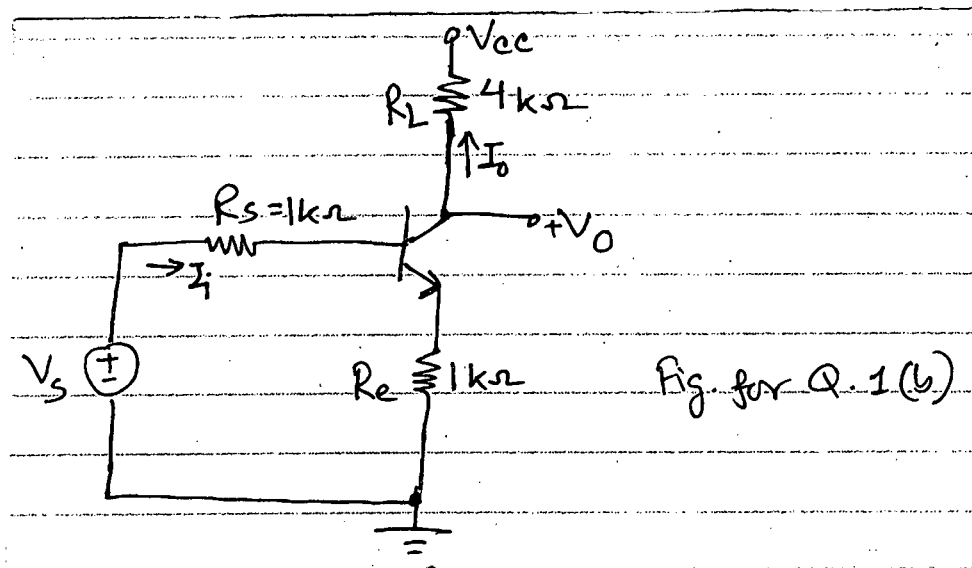 Vcc
RL 4kΩ
↑I₀
Rs=1kΩ
+V₀
→Ii
Vs
+
-
Re 1kΩ
Fig. for Q. 1(b)